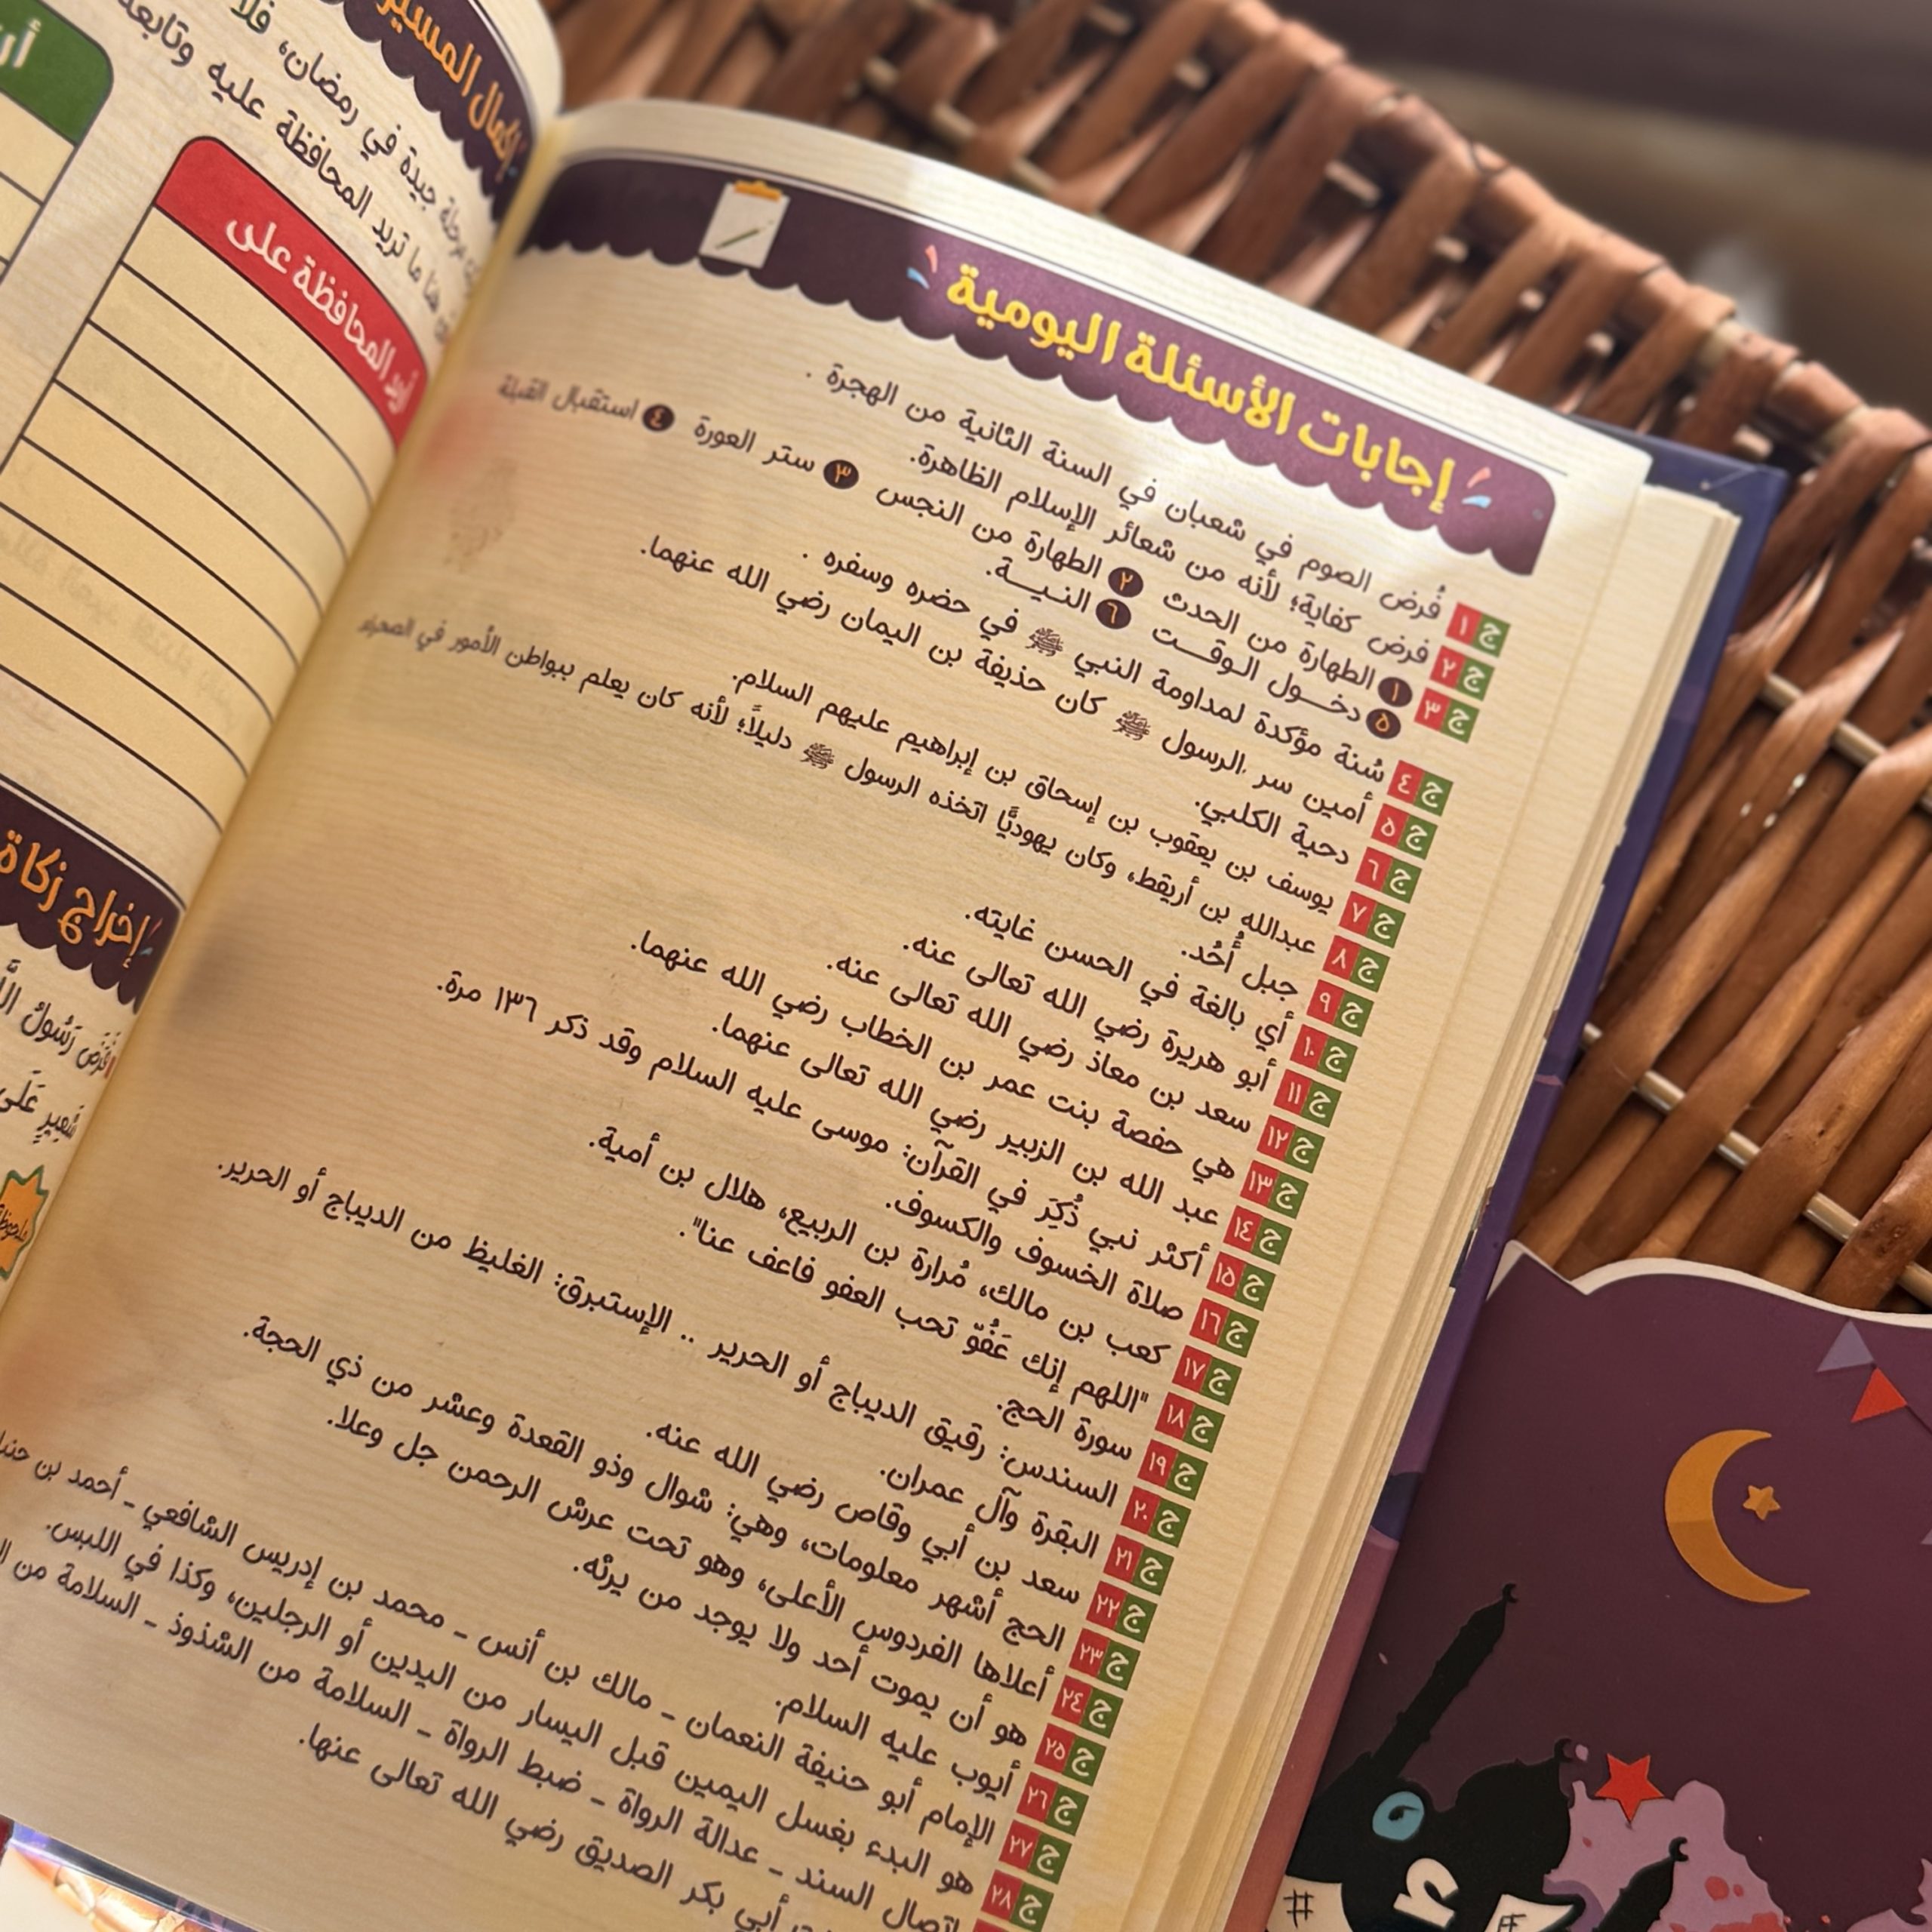 إجابات الأسئلة اليومية
ج ١ فُرض الصوم في شعبان في السنة الثانية من الهجرة .
ج ٢ فرض كفاية؛ لأنه من شعائر الإسلام الظاهرة.
ج ٣ ١ الطهارة من الحدث ٢ الطهارة من النجس ٣ ستر العورة ٤ استقبال القبلة
٥ دخـول الـوقـــت ٦ النـيـــة.
ج ٤ سُنة مؤكدة لمداومة النبي ﷺ في حضره وسفره .
ج ٥ أمين سر الرسول ﷺ كان حذيفة بن اليمان رضي الله عنهما.
ج ٦ دحية الكلبي.
ج ٧ يوسف بن يعقوب بن إسحاق بن إبراهيم عليهم السلام.
ج ٨ عبدالله بن أريقط، وكان يهوديًّا اتخذه الرسول ﷺ دليلاً؛ لأنه كان يعلم ببواطن الأمور في الصحراء
ج ٩ جبل أُحُد.
ج ١٠ أي بالغة في الحسن غايته.
ج ١١ أبو هريرة رضي الله تعالى عنه.
ج ١٢ سعد بن معاذ رضي الله تعالى عنه.
ج ١٣ هي حفصة بنت عمر بن الخطاب رضي الله عنهما.
ج ١٤ عبد الله بن الزبير رضي الله تعالى عنهما.
ج ١٥ أكثر نبي ذُكِرَ في القرآن: موسى عليه السلام وقد ذكر ١٣٦ مرة.
ج ١٦ صلاة الخسوف والكسوف.
ج ١٧ كعب بن مالك، مُرارة بن الربيع، هلال بن أمية.
ج ١٨ "اللهم إنك عَفُوّ تحب العفو فاعف عنا".
ج ١٩ سورة الحج.
ج ٢٠ السندس: رقيق الديباج أو الحرير .. الإستبرق: الغليظ من الديباج أو الحرير.
ج ٢١ البقرة وآل عمران.
ج ٢٢ سعد بن أبي وقاص رضي الله عنه.
ج ٢٣ الحج أشهر معلومات، وهي: شوال وذو القعدة وعشر من ذي الحجة.
ج ٢٤ أعلاها الفردوس الأعلى، وهو تحت عرش الرحمن جل وعلا.
ج ٢٥ هو أن يموت أحد ولا يوجد من يرثه.
ج ٢٦ أيوب عليه السلام.
ج ٢٧ الإمام أبو حنيفة النعمان - مالك بن أنس - محمد بن إدريس الشافعي - أحمد بن
ج ٢٨ هو البدء بغسل اليمين قبل اليسار من اليدين أو الرجلين، وكذا في اللبس.
اتصال السند - عدالة الرواة - ضبط الرواة - السلامة من الشذوذ - السلامة من
أبي بكر الصديق رضي الله تعالى عنها.
إكمال المسير
جيدة في رمضان، فلا
هنا ما تريد المحافظة عليه وتابعه
أريد المحافظة على
إخراج زكاة
فَرَضَ رَسُولُ
شَعِيرٍ عَلَى
ملحوظة